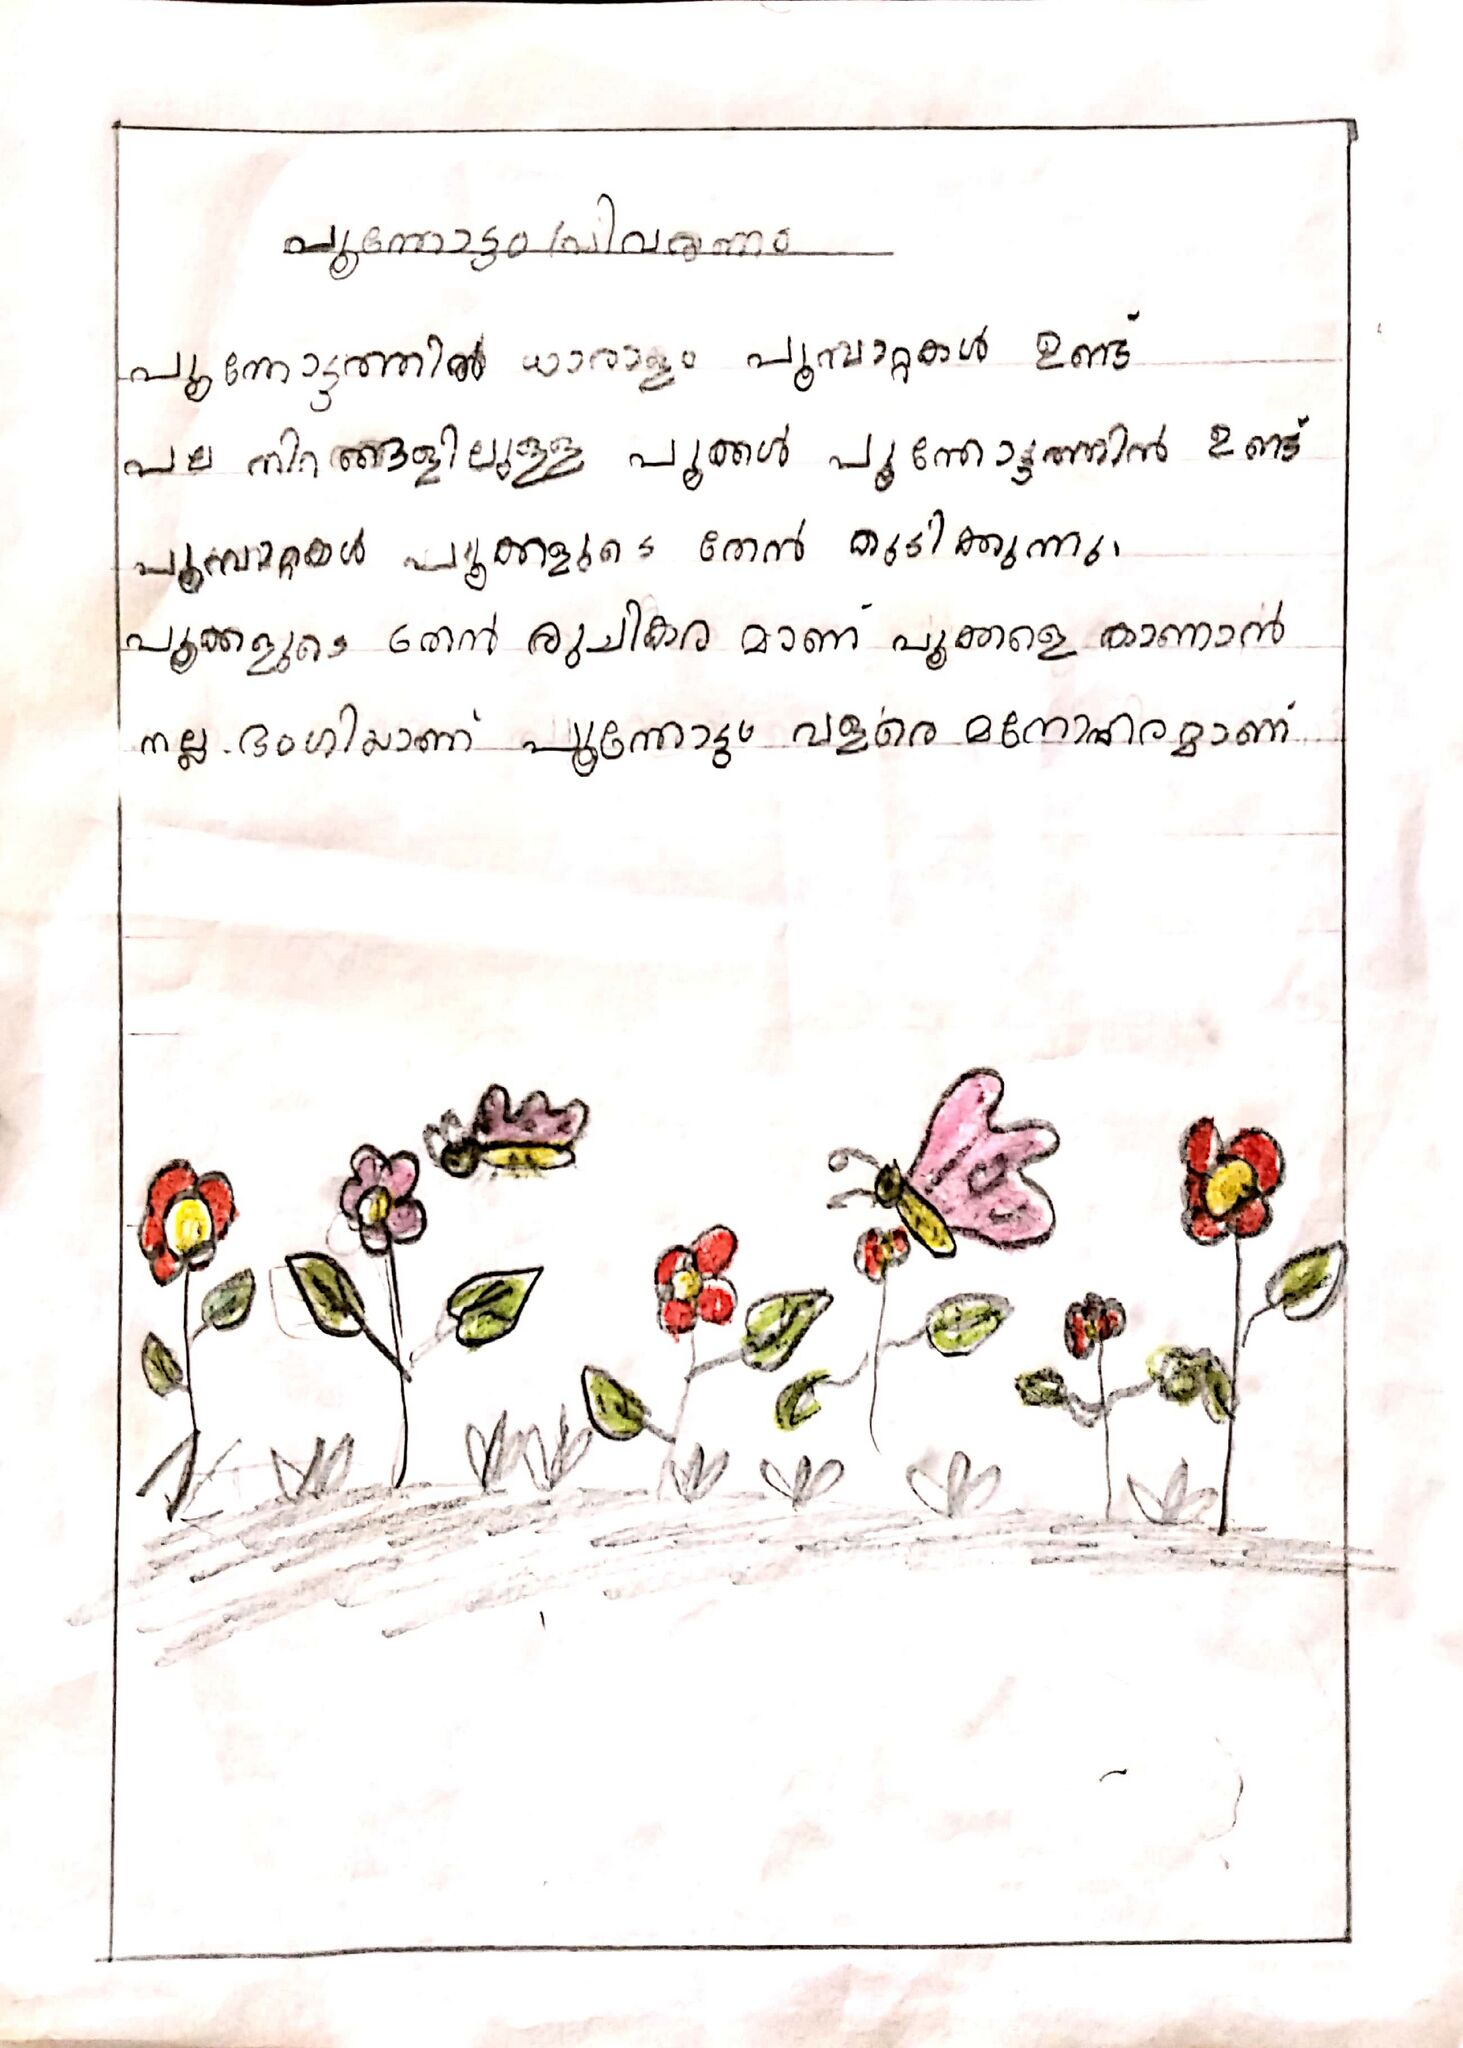 പൂന്തോട്ടം വിവരണം
പൂന്തോട്ടത്തിൽ ധാരാളം പൂമ്പാറ്റകൾ ഉണ്ട്
പല നിറങ്ങളിലുള്ള പൂക്കൾ പൂന്തോട്ടത്തിൽ ഉണ്ട്
പൂമ്പാറ്റകൾ പൂക്കളുടെ തേൻ കുടിക്കുന്നു.
പൂക്കളുടെ തേൻ രുചികര മാണ് പൂക്കളെ കാണാൻ
നല്ല ഭംഗിയാണ് പൂന്തോട്ടം വളരെ മനോഹരമാണ്